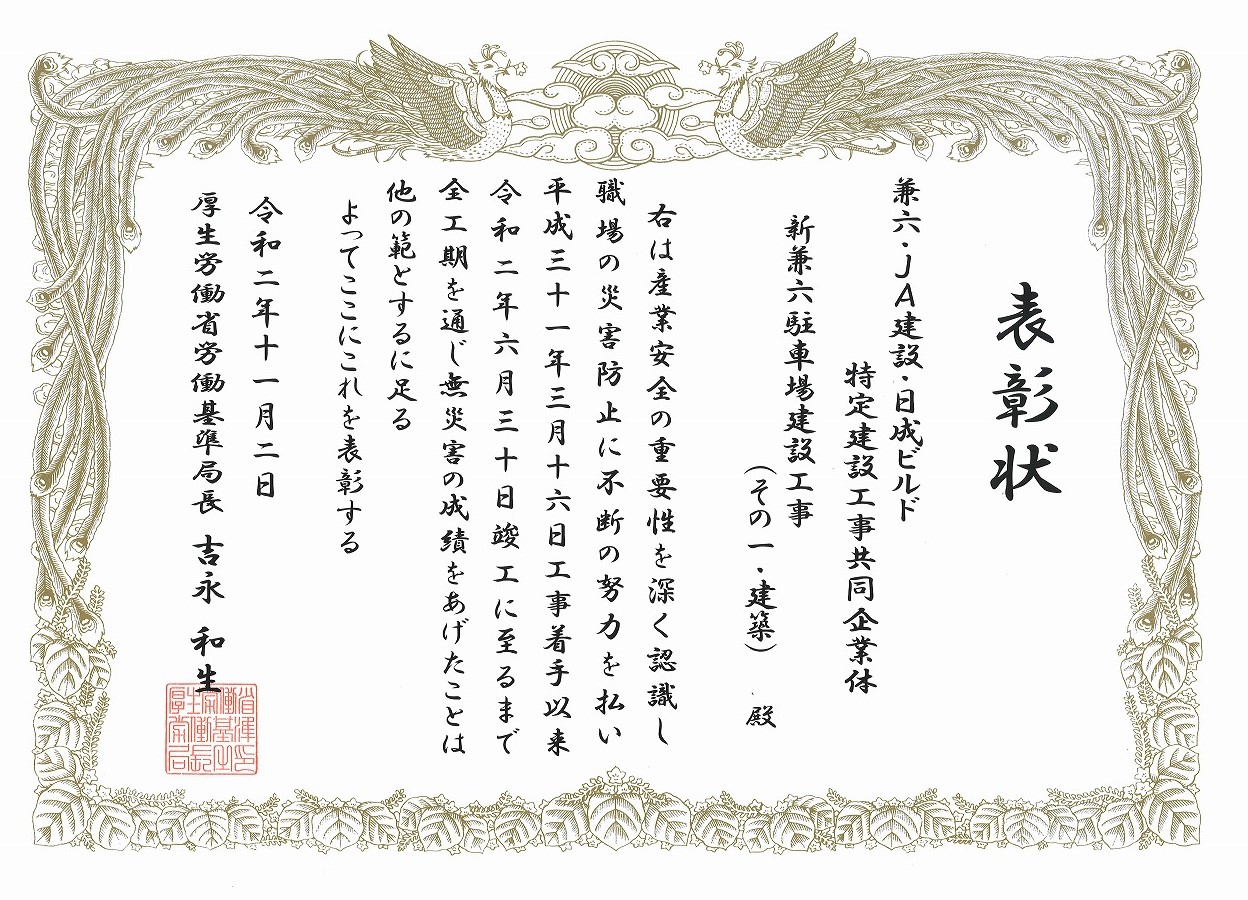 表彰状
兼六・JA建設・日成ビルド
特定建設工事共同企業体
新兼六駐車場建設工事
(その一・建築) 殿
右は産業安全の重要性を深く認識し
職場の災害防止に不断の努力を払い
平成三十一年三月十六日工事着手以来
令和二年六月三十日竣工に至るまで
全工期を通じ無災害の成績をあげたことは
他の範とするに足る
よってここにこれを表彰する
令和二年十一月二日
厚生労働省労働基準局長 吉永 和生